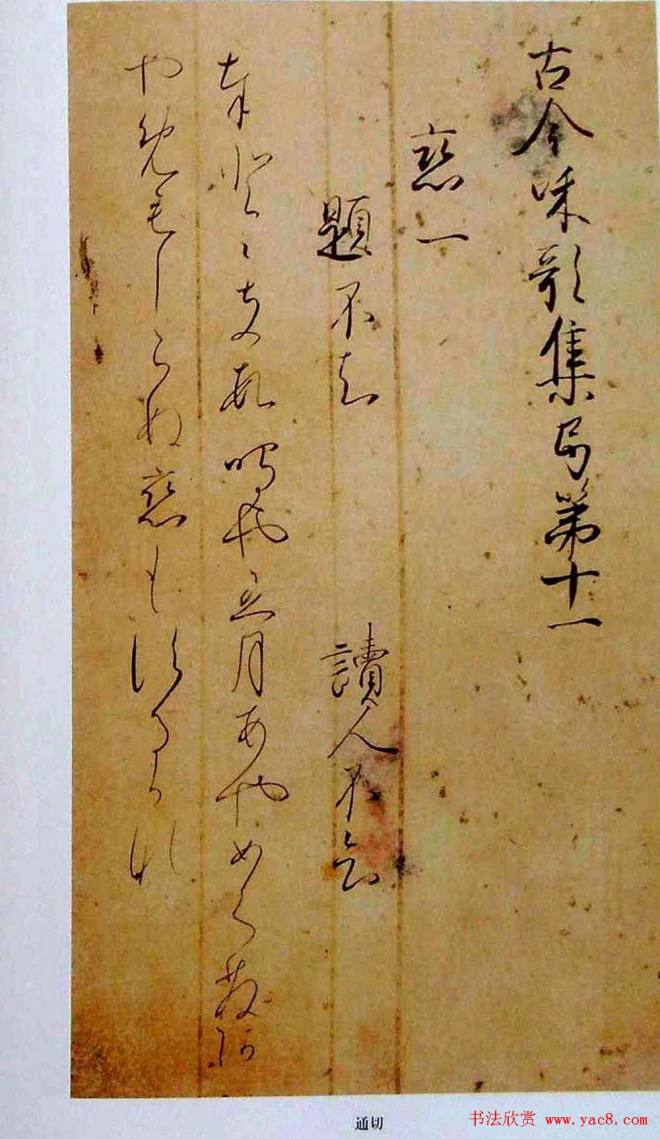 古今和歌集卷第十一
戀一
題不知　讀人不知
ほとゝきす鳴や五月あやめくさあ
やめもしらぬ戀もするかな
通切
书法欣赏 www.yac8.com